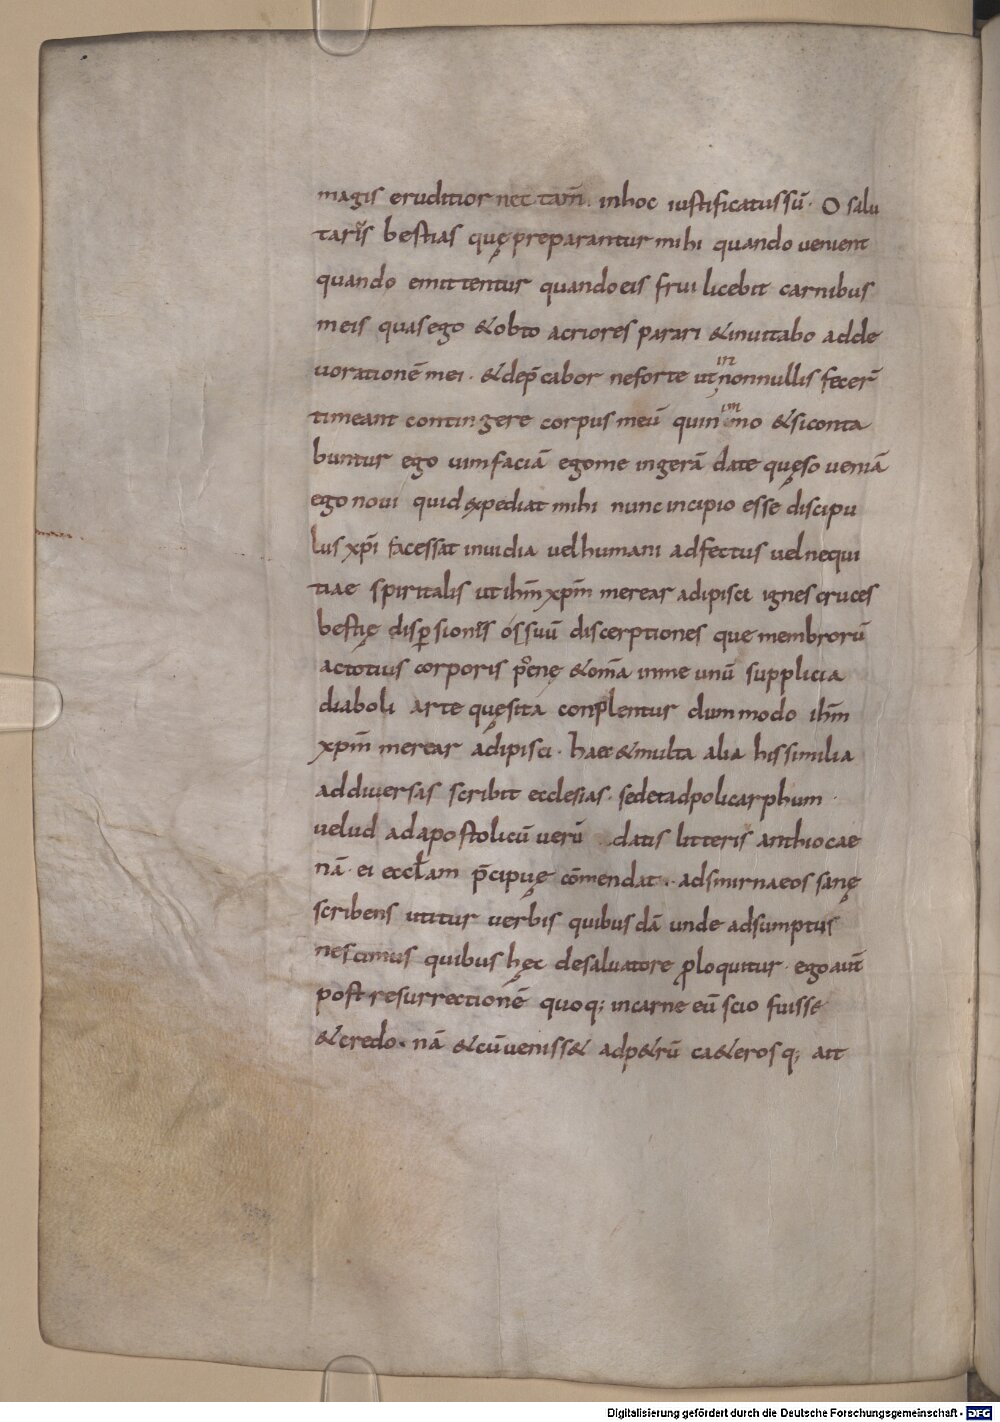 magis eruditior nec tam̄. inhoc iustificatussū· O salu
taris bestias quę preparantur mihi quando uenient
quando emittentur quando eis frui licebit carnibus
meis quas ego &obto acriores parari &inuitabo adde
uorationē mei· &dep̄cabor neforte ut in nonnullis fecer̄
timeant contingere corpus meū quin immo &siconta
buntur ego uim faciā egome ingerā date quęso ueniā
ego noui quid expediat mihi nunc incipio esse discipu
lus xp̄i facessat inuidia uel humani adfectus uel nequi
tiae spiritalis ut ihm̄ xpm̄ merear adipisci ignes cruces
bestię dispersionis ossuū discerptiones que membrorū
ac totius corporis poenę &om̄a in me unū supplicia
diaboli arte quęsita conplentur dum modo ihm̄
xpm̄ merear adipisci· haec &multa alia his similia
addiuersas scribit ecclesias· sed et ad policarphum·
uelud ad apostolicū uerū datis litteris anthiocae
nā· ei eccłam p̄cipuę cōmendat· adsmirnaeos sanę
scribens utitur uerbis quibusdā unde adsumptus
nescimus quibus hęc desaluatore ploquitur· ego aūt
post resurrectionē quoq; incarne eū scio fuisse
&credo· nā &cū ueniss& adp&rū ca&erosq; ait
Digitalisierung gefördert durch die Deutsche Forschungsgemeinschaft - DFG